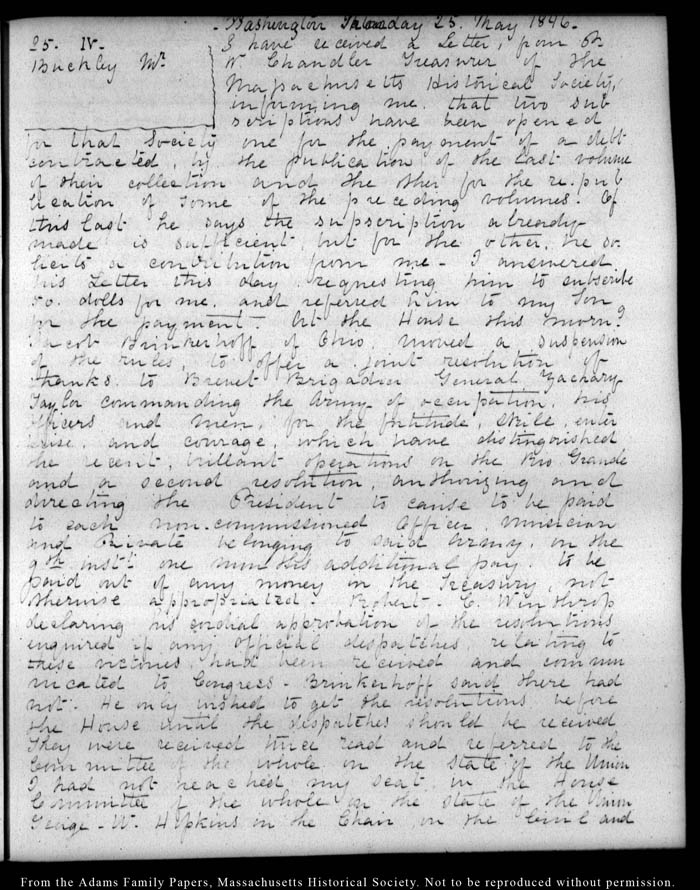 Washington Monday 25. May 1846.
25. IV.
Buckley Mr.
I have received a Letter, from
W Chandler Treasurer of the
Massachusetts Historical Society,
informing me that two sub
scriptions have been opened
for that Society one for the payment of a debt
contracted, by the publication of the last volume
of their collection and the other for the re.pub
lication of some of the preceding volumes. Of
this last he says the supscription already
made is sufficient but for the other, he so.
licits a contribution from me - I answered
his Letter this day requesting him to subscribe
50. dolls for me. and referred him to my Son
for the payment. At the House this morng
Jacob Brinkerhoff of Ohio moved a suspension
of the rules, to offer a joint resolution of
thanks. to Brevet Brigadier General Zachary
Taylor commanding the Army of occupation, his
officers and men, for the fortitude, skill, enter
prise, and courage, which have distinguished
the recent, brilliant operations on the Rio Grande
and a second resolution, authorizing and
directing the President to cause to be paid
to each non.commissioned Officer, musician
and Private belonging to said Army. on the
9th inst. one months additional pay. to be
paid out of any money in the Treasury, not
otherwise appropriated. Robert. C. Winthrop
declaring his cordial approbation of the resolutions
enquired if any Official despatches, relating to
these victories, had been received and commu
nicated to Congress - Brinkerhoff said there had
not. He only wished to get the resolutions before
the House until the dispatches should be received
They were received twice read and referred to the
Committee of the whole on the state of the Union
I had not reached my seat in the House
Committee of the whole on the state of the Union
George - W. Hopkins in the Chair, on the Civil and
From the Adams Family Papers, Massachusetts Historical Society. Not to be reproduced without permission.